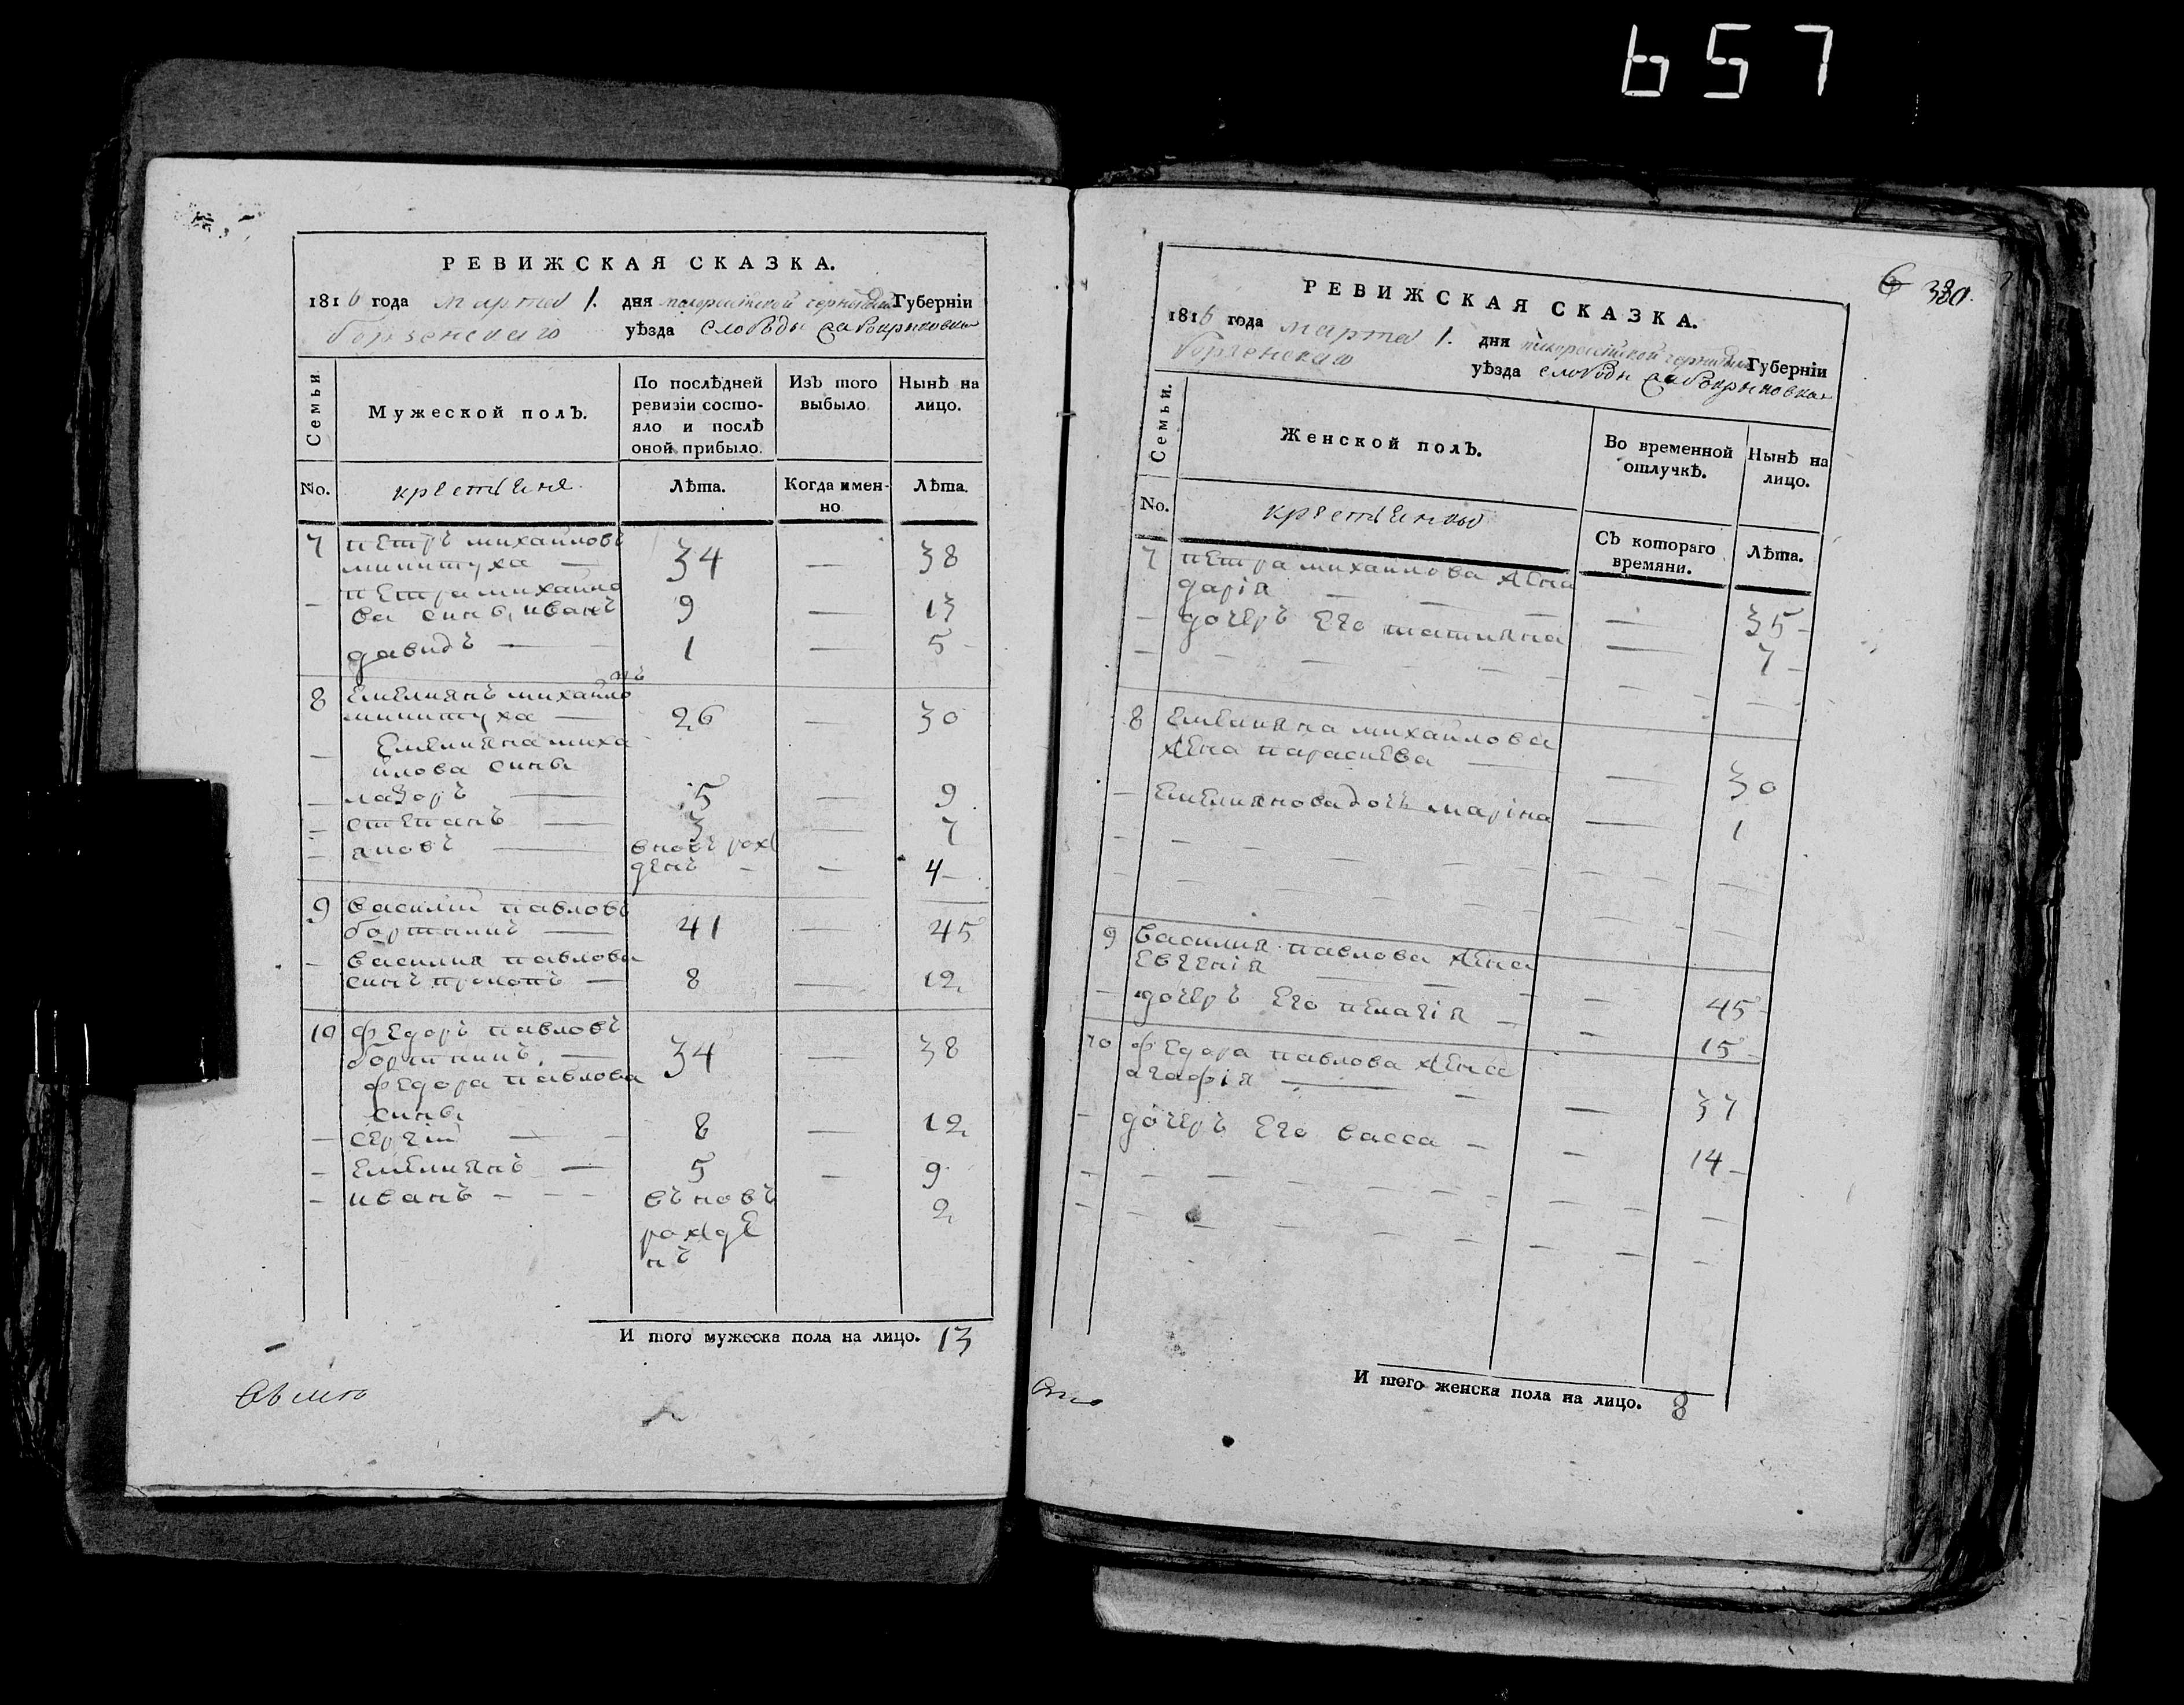 657
РЕВИЖСКАЯ СКАЗКА.
1816 года марта 1. дня малороссійской черниговской Губерніи
борзенского уѣзда слободы
Семьи.
Мужеской полЪ.
По послѣдней ревизіи состояло и послѣ оной прибыло.
ИзЪ того выбыло.
НынѣЪ на лицо.
No.
крестьяне.
Лѣта.
Когда именно
Лѣта.
7 петръ михайловъ
34 — 38
— петра михайло
ва сынъ, иванъ 9 — 13
давидъ — 1 — 5
8 Емелиянъ михайло
въ
26 — 30
Емелияна миха
йлова сины
— лазоръ — 5 — 9
— степанъ — 3 — 7
— яковъ — вновъ рож
денъ — — 4
9 василий павловъ
41 — 45
— василия павлова
синъ прокопъ — 8 — 12
10 федоръ павловъ
34 — 38
федора павлова
сины
— сергій — 8 — 12
— Емелиянъ — 5 — 9
— иванъ — въновъ 2
рожде
нъ
И того мужеска пола на лицо. 13
6 380.
РЕВИЖСКАЯ СКАЗКА.
1816 года марта 1. дня малороссійской черниговской Губерніи
борзенского уѣзда слободы
Семьи.
Женской полЪ.
Во временной отлучкѣ.
Нынѣ на лицо.
No.
крестьянки
СЪ котораго времяни.
Лѣта.
7 петра михайлова жена
дарія — — 35
— дочеръ Его татияна — 7
8 Емелияна михайлова
жена параскева — — 30
— Емелиянова дочь маріна — 1
9 василия павлова жена
Евгенія — — 45
— дочеръ Его пелагія — — 15
10 федора павлова жена
агафія — — 37
— дочеръ Его васса — — 14
И того женска пола на лицо. 8